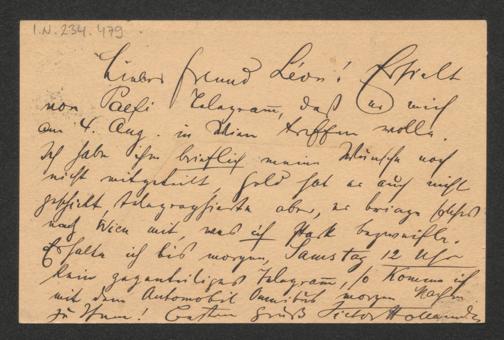 I.N. 234.479
Lieber Freund Léon! Erhielt
von Palfi Telegram̄, daß er mich
am 4. Aug. in Wien treffen wolle.
Ich habe ihm brieflich meine Wünsche noch
nicht mitgeteilt, Geld hat er auch nicht
geschickt, telegraphierte aber, er bringe solches
nach Wien mit, was ich stark bezweifle.
Erhalte ich bis morgen, Samstag 12 Uhr
kein gegenteiliges Telegram̄, so komme ich
mit dem Automobil Omnibus morgen
zu Ihnen! Besten Gruß Victor Hollaender